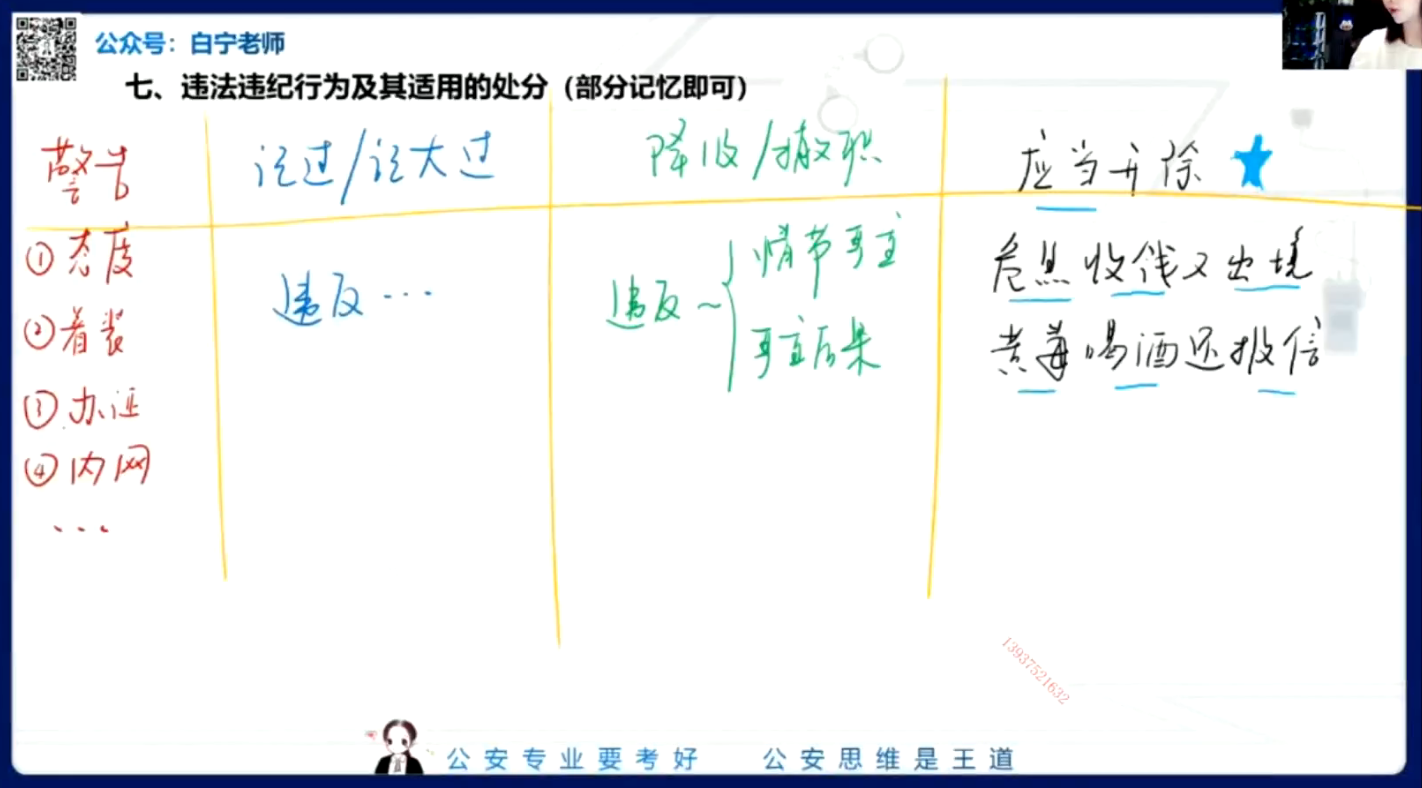 公众号：白宁老师
七、违法违纪行为及其适用的处分（部分记忆即可）
警告
记过/记大过
降级/撤职
应当开除
①态度
②着装
③办证
④内网
...
违反...
违反~
情节严重
严重后果
危黑收钱又出境
黄毒喝酒还报信
13937521632
公安专业要考好 公安思维是王道